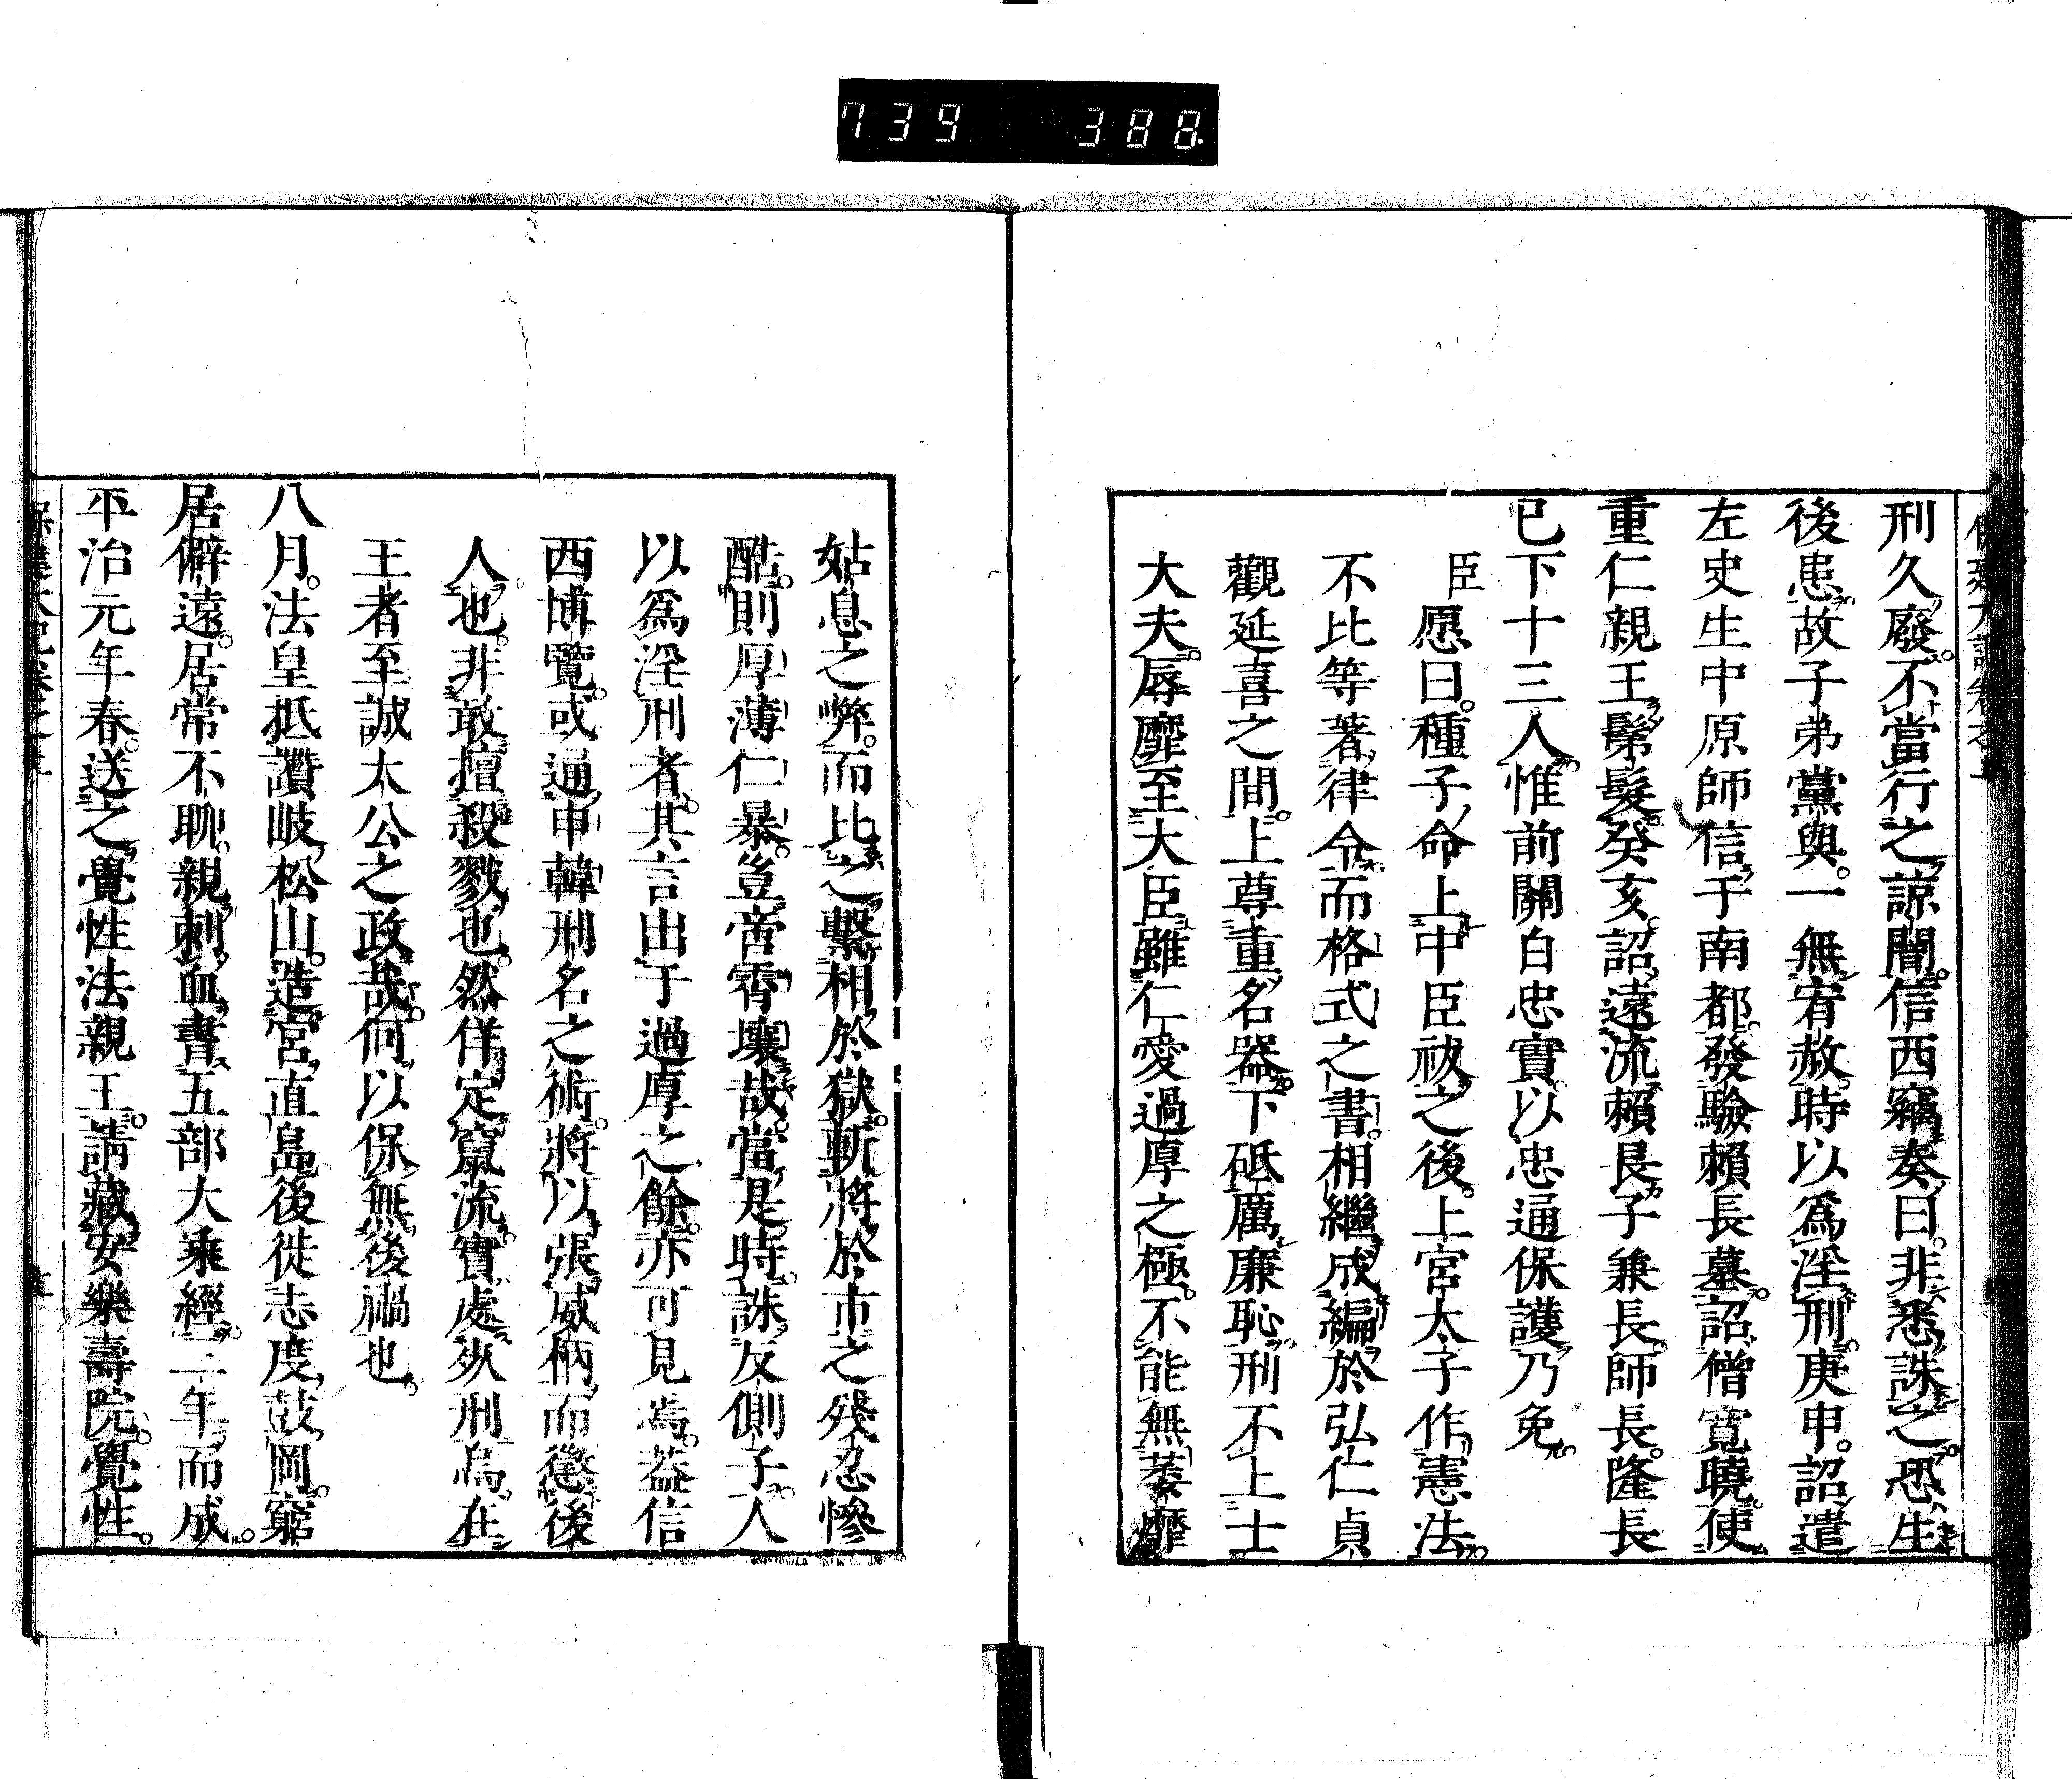 739 388
刑久廢。不當行之諒闇。信西竊奏曰。非悉誅之。恐生
後患。故子弟黨與。一無宥赦。時以爲淫刑。庚申。詔遣
左史生中原師信于南都。發驗賴長墓。詔僧寬曉。使
重仁親王鬀髮。癸亥。詔遠流賴長子兼長。師長。隆長
已下十三人。惟前關白忠實。以忠通保護乃免。
臣愿曰。種子命上中臣祓之後。上官太子作憲法。
不比等著律令。而格式之書。相繼成編。於弘仁貞
觀延喜之間。上尊重名器。下砥厲廉恥。刑不上士
大夫。辱靡至大臣。雖仁愛過厚之極。不能無萎靡
姑息之弊。而比之繫相於獄。斬將於市之殘忍慘
酷。則厚薄仁暴。豈啻霄壤哉。當是時。誅反側子。人
以爲淫刑者。其言出于過厚之餘。亦可見焉。葢信
西博覽。或通申韓刑名之術。將以張威柄。而懲後
人也。非敢擅殺戮也。然佯定竄流。實處夾刑。烏在
王者至誠太公之政哉。何以保無後禍也。
八月。法皇抵讚岐松山。造宮直島。後徙志度鼓岡。窮
居僻遠。居常不聊。親刺血書五部大乘經。二年而成。
平治元年春。送之覺性法親王。請藏安樂壽院。覺性。